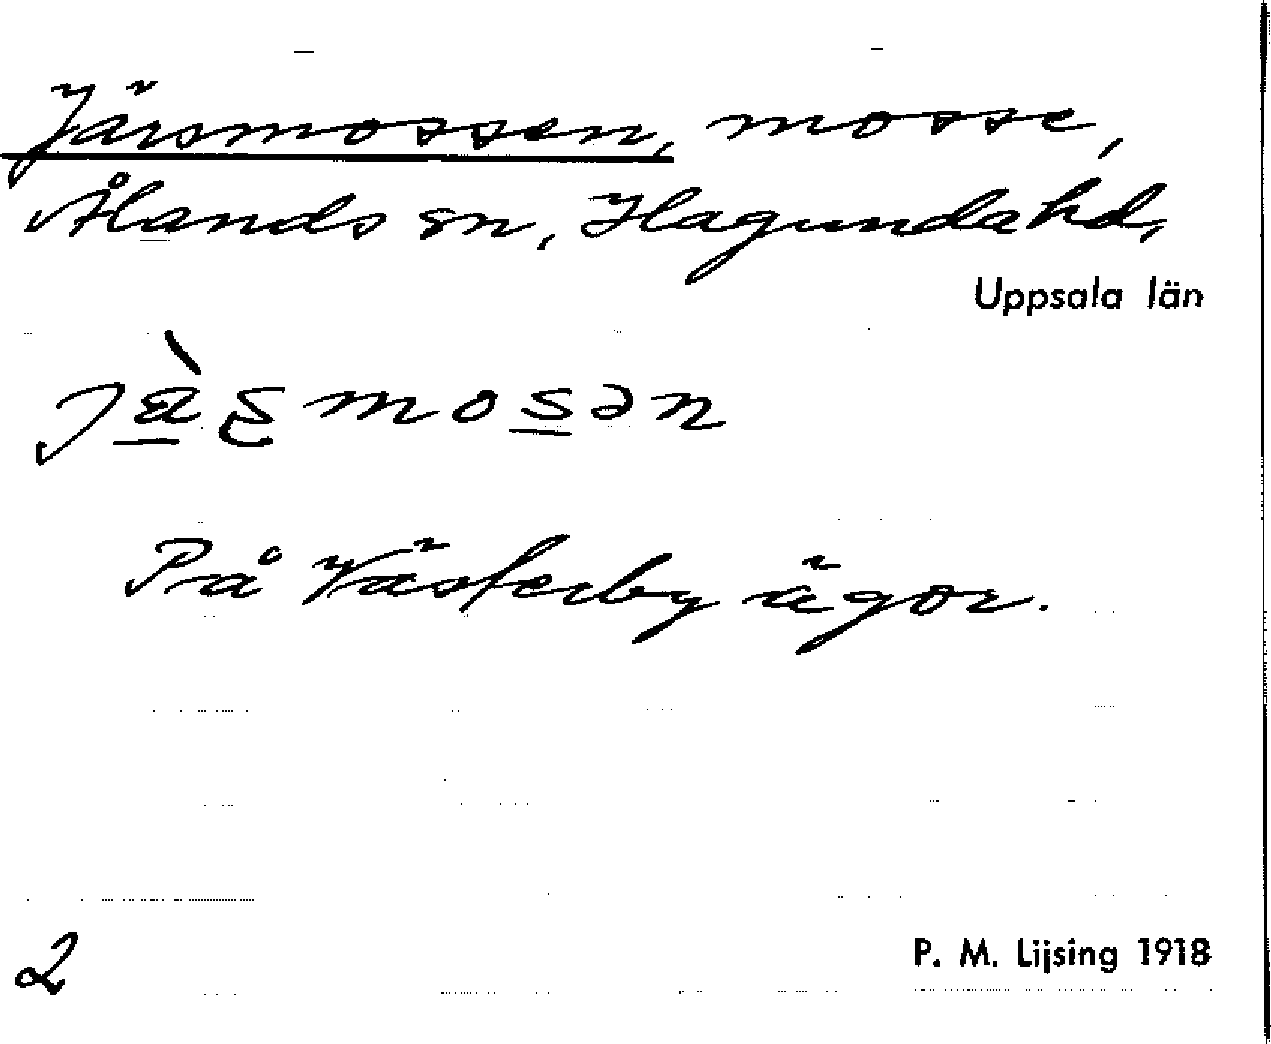 Järsmossen, mosse,
Ålands sn, Hagunda hd,
Uppsala län
På Västerby ägor.
2
P. M. Lijsing 1918